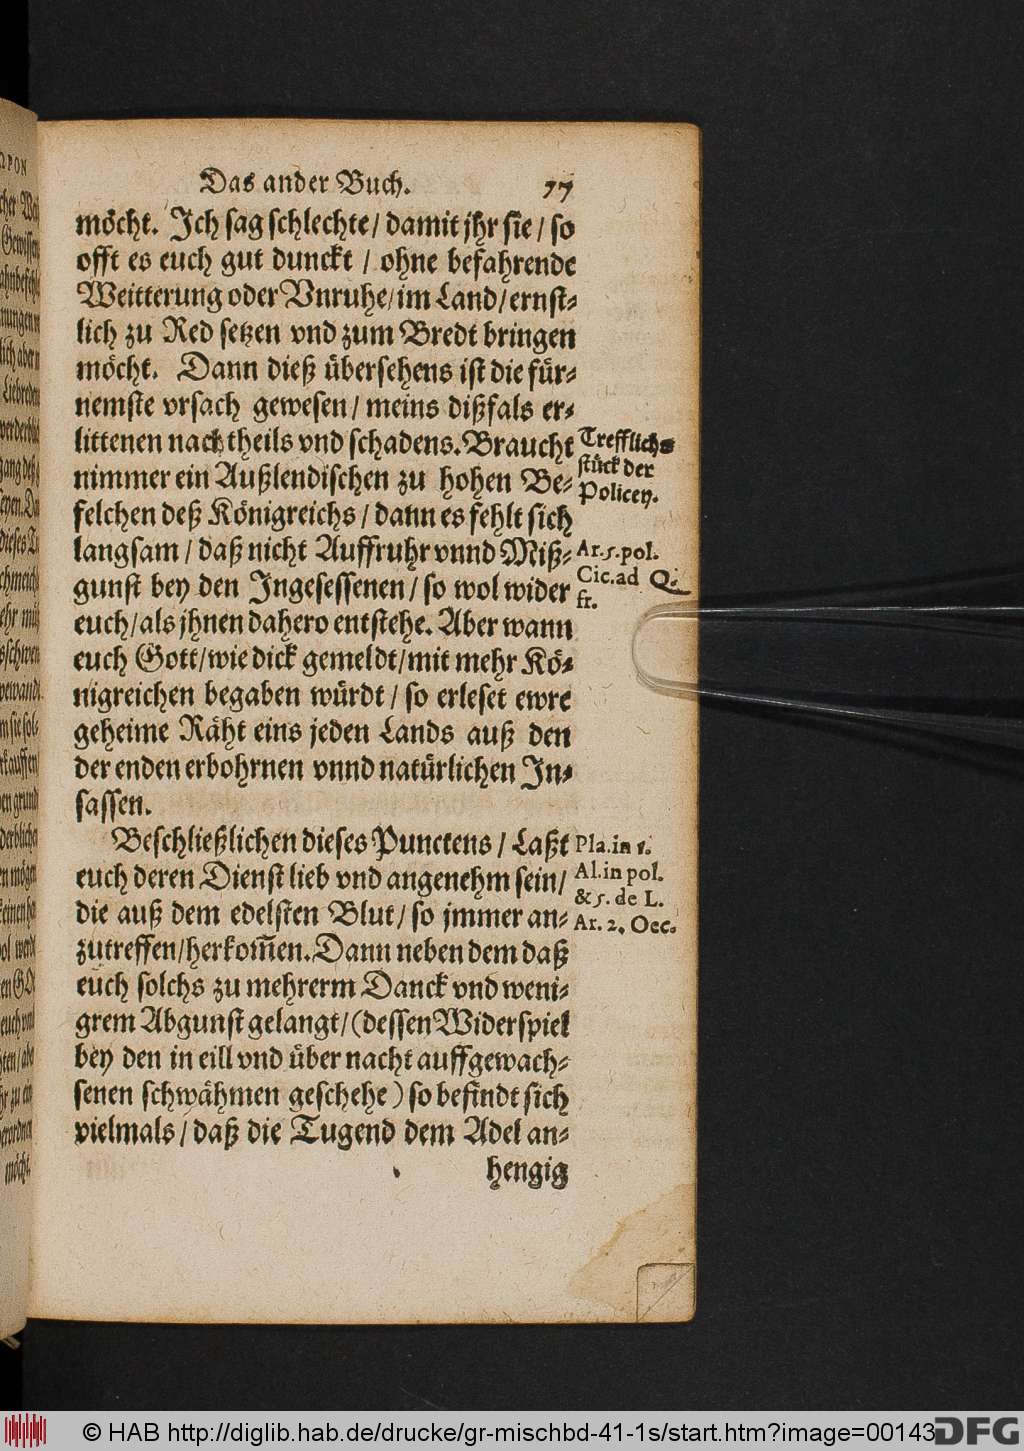 Das ander Buch. 77
möcht. Ich sag schlechte / damit jhr sie / so
offt es euch gut dunckt / ohne befahrende
Weitterung oder Vnruhe / im Land / ernst-
lich zu Red setzen vnd zum Bredt bringen
möcht. Dann dieß übersehens ist die für-
nemste vrsach gewesen / meins dißfals er-
littenen nachtheils vnd schadens. Braucht
nimmer ein Außlendischen zu hohen Be-
felchen deß Königreichs / dann es fehlt sich
langsam / daß nicht Auffruhr vnnd Miß-
gunst bey den Ingesessenen / so wol wider
euch / als jhnen dahero entstehe. Aber wann
euch Gott / wie dick gemeldt / mit mehr Kö-
nigreichen begaben würdt / so erleset ewre
geheime Räht eins jeden Lands auß den
der enden erbohrnen vnnd natürlichen In-
sassen.
Trefflichs
stück der
Policey.
Ar. 5. pol.
Cic. ad Q.
fr.
Beschließlichen dieses Punctens / Laßt
euch deren Dienst lieb vnd angenehm sein /
die auß dem edelsten Blut / so jmmer an-
zutreffen / herkom̃en. Dann neben dem daß
euch solchs zu mehrerm Danck vnd weni-
grem Abgunst gelangt / (dessen Widerspiel
bey den in eill vnd über nacht auffgewach-
senen schwähmen geschehe) so befindt sich
vielmals / daß die Tugend dem Adel an-
hengig
Pla. in 1.
Al. in pol.
& 5. de L.
Ar. 2. Oec.
© HAB http://diglib.hab.de/drucke/gr-mischbd-41-1s/start.htm?image=00143
DFG